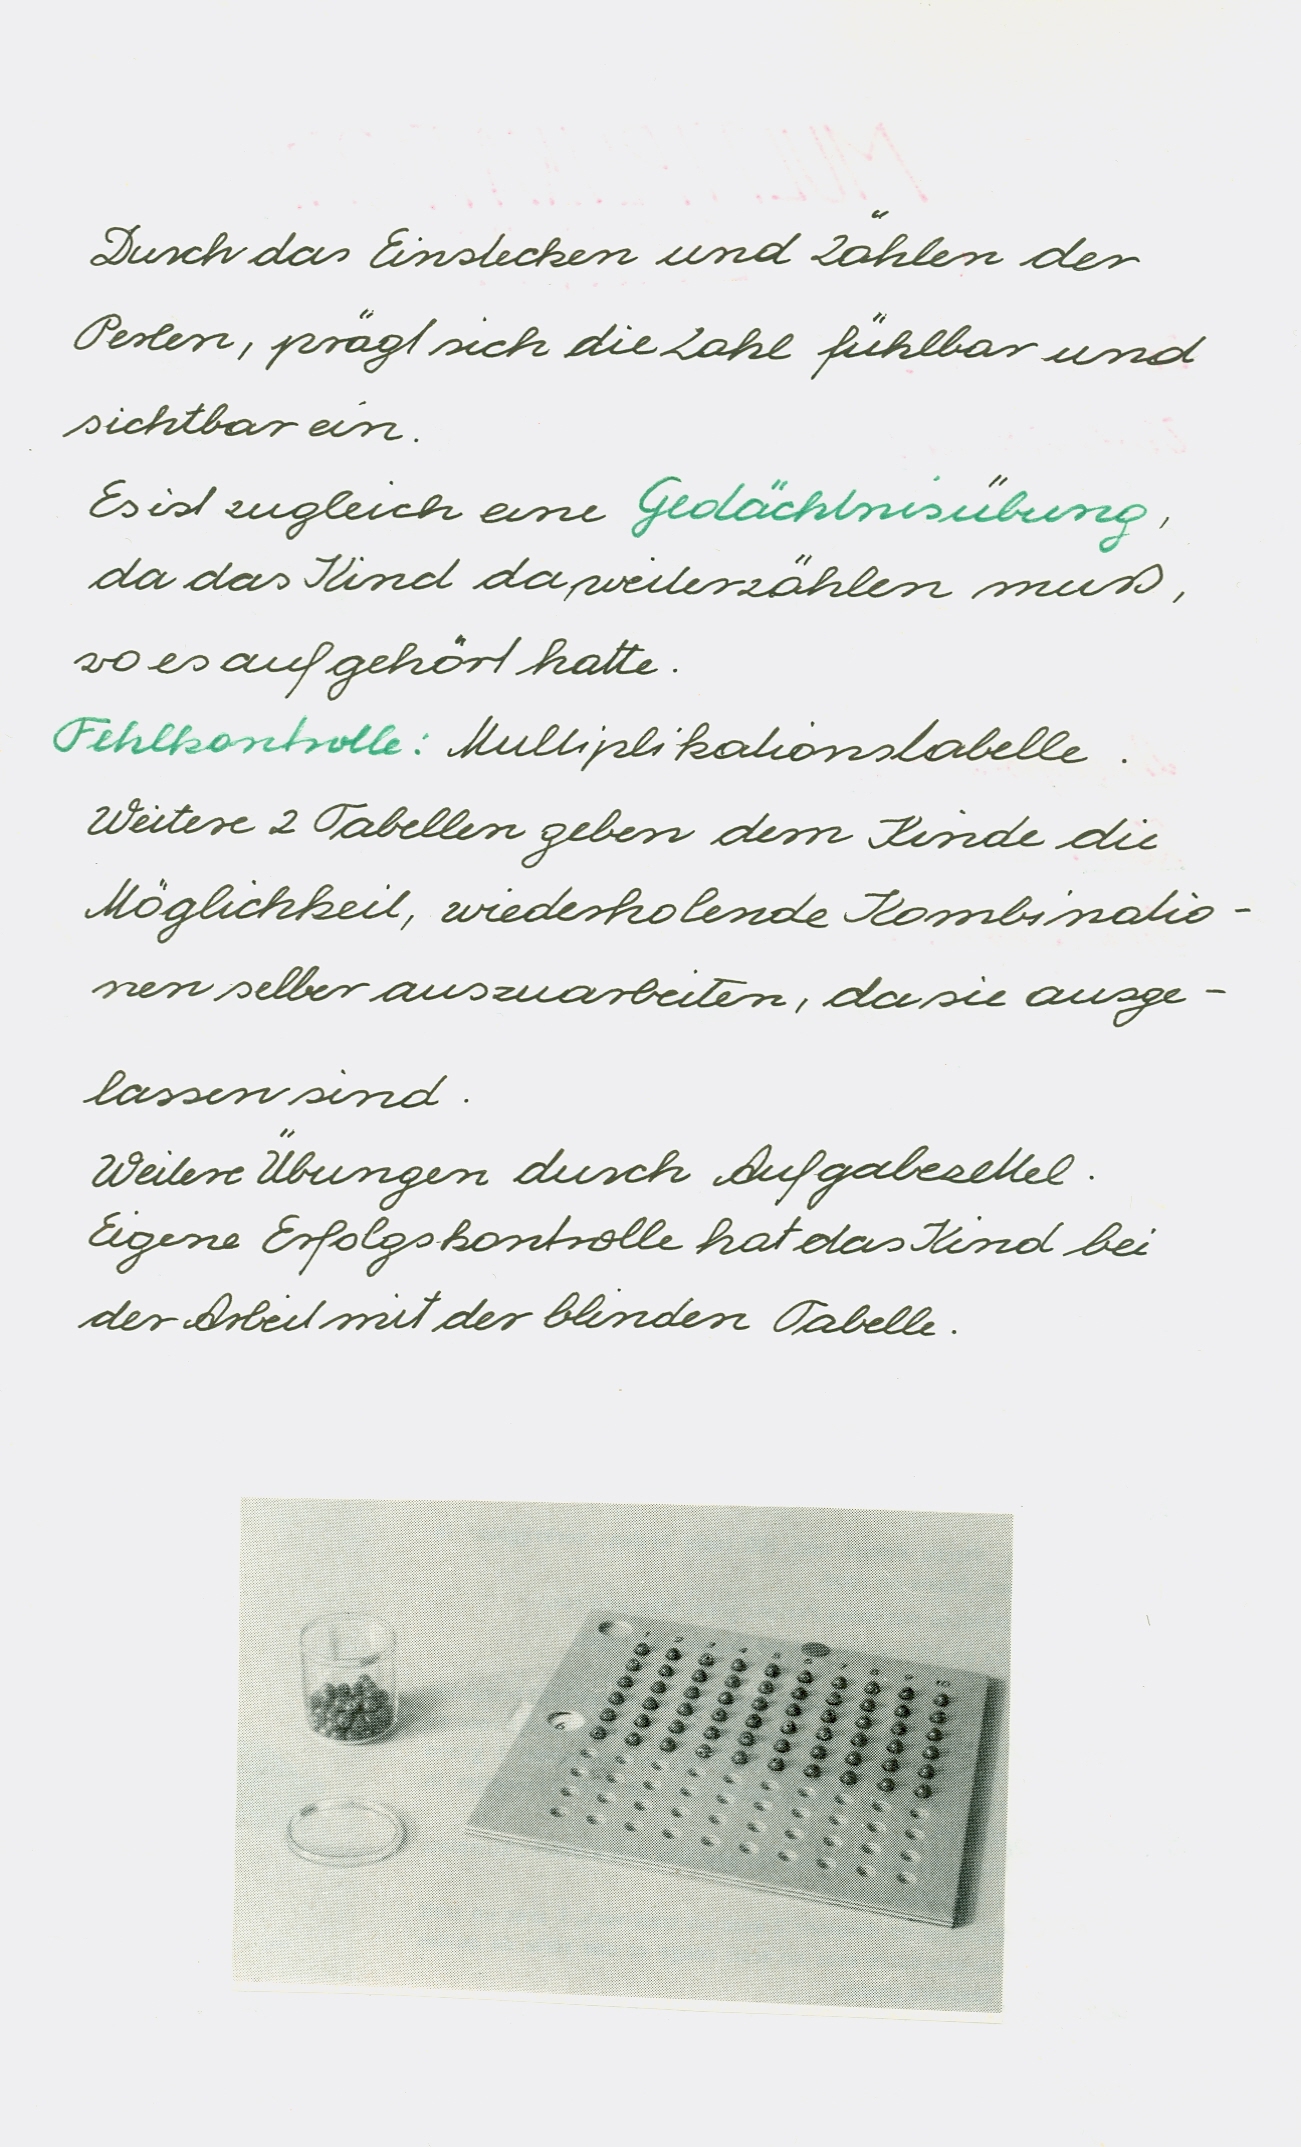 Durch das Einstecken und Zählen der
Perlen, prägt sich die Zahl fühlbar und
sichtbar ein.
Es ist zugleich eine Gedächtnisübung,
da das Kind da, weiterzählen muß,
wo es aufgehört hatte.
Fehlkontrolle: Multiplikationstabelle.
Weitere 2 Tabellen geben dem Kinde die
Möglichkeit, wiederholende Kombinatio-
nen selber auszuarbeiten, da sie ausge-
lassen sind.
Weitere Übungen durch Aufgabezettel.
Eigene Erfolgskontrolle hat das Kind bei
der Arbeit mit der blinden Tabelle.
1 2 3 4 5 6 7 8 9 10
6